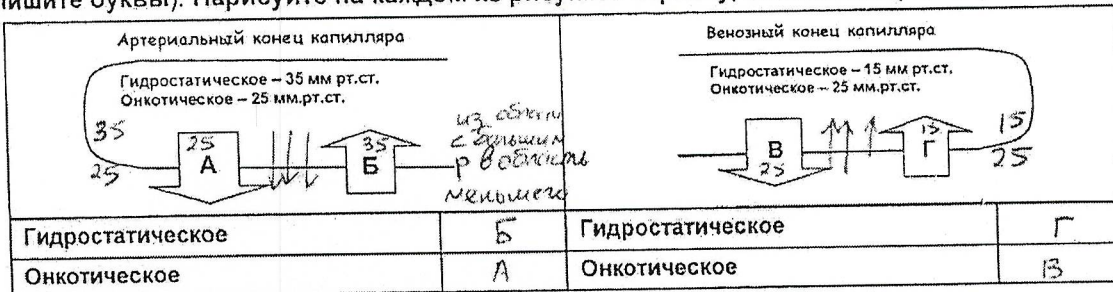 Артериальный конец капилляра
Гидростатическое – 35 мм рт.ст.
Онкотическое – 25 мм.рт.ст.
35
25
25
А
35
Б
из области
с большим
р в область
меньшего
Венозный конец капилляра
Гидростатическое – 15 мм рт.ст.
Онкотическое – 25 мм.рт.ст.
В
25
15
Г
15
25
Гидростатическое Б Гидростатическое Г
Онкотическое А Онкотическое В